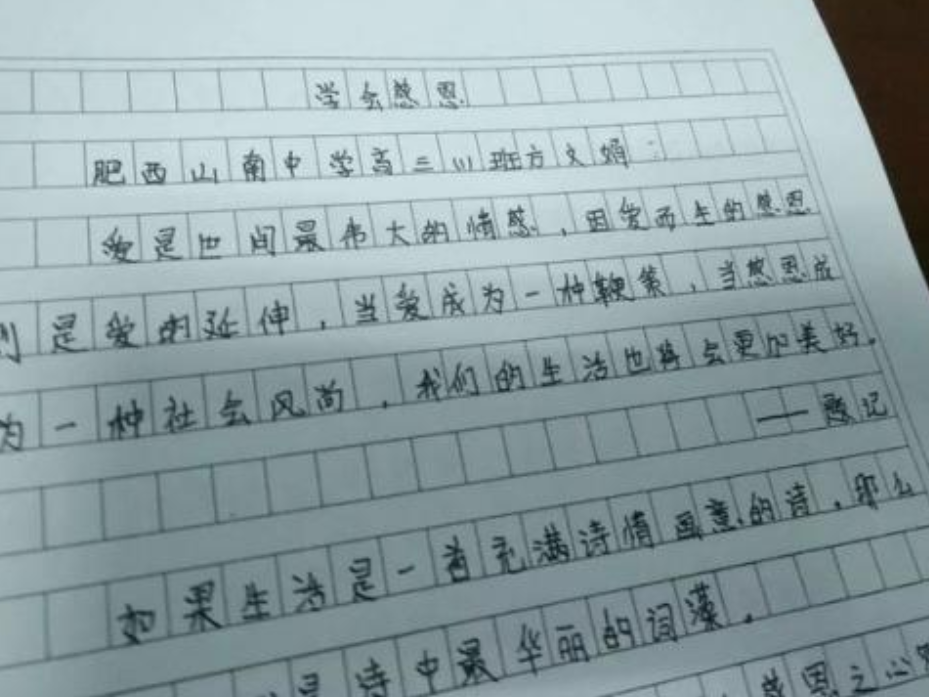 学会感恩
肥西山南中学高三川班方文娟:
爱是世间最伟大的情感,因爱而生的感恩
则是爱的延伸,当爱成为一种鞭策,当感恩成
为一种社会风尚,我们的生活也将会更加美好。
——题记
如果生活是一首充满诗情画意的诗,那么
是诗中最华丽的词藻。
感恩之心